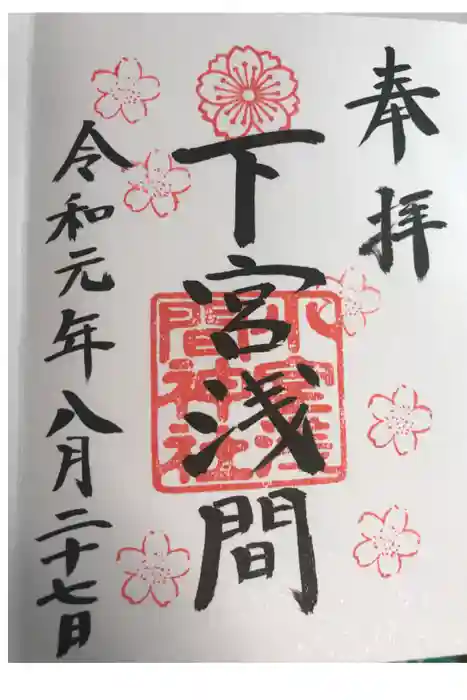 奉拝
下宮浅間
下宮浅間神社
令和元年八月二十七日